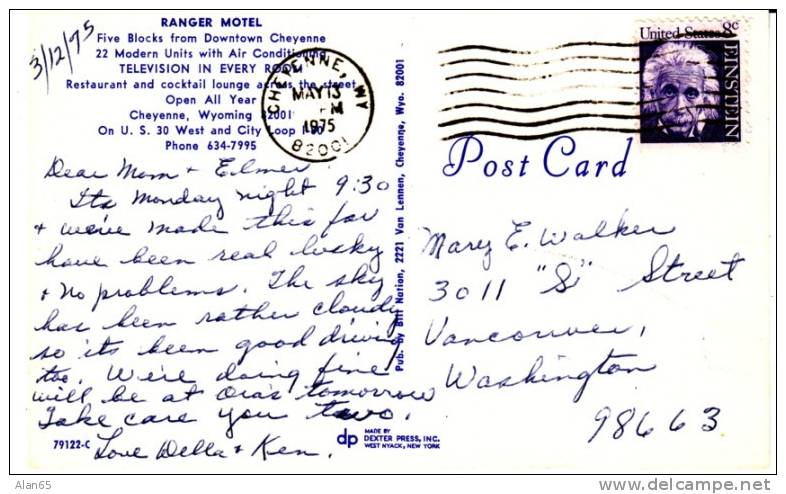 RANGER MOTEL
Five Blocks from Downtown Cheyenne
22 Modern Units with Air Conditioning
TELEVISION IN EVERY ROOM
Restaurant and cocktail lounge across the street
Open All Year
Cheyenne, Wyoming 82001
On U. S. 30 West and City Loop I-80
Phone 634-7995
3/12/75
CHEYENNE, WY
MAY 13
PM
1975
82001
United States 8c
EINSTEIN
Post Card
Dear Mom + Elmer
Its Monday night 9:30
+ we've made this far
have been real lucky
+ No problems. The sky
has been rather cloudy
so its been good driving
too. We're doing fine
will be at Ora's tomorrow
Take care you two.
Love Della + Ken.
Pub. by Bill Nation, 2221 Van Lennen, Cheyenne, Wyo. 82001
Mary E. Walker
3011 "S" Street
Vancouver,
Washington
98663
79122-C
dp
MADE BY
DEXTER PRESS, INC.
WEST NYACK, NEW YORK
Alan65
http://www.delcampe.net